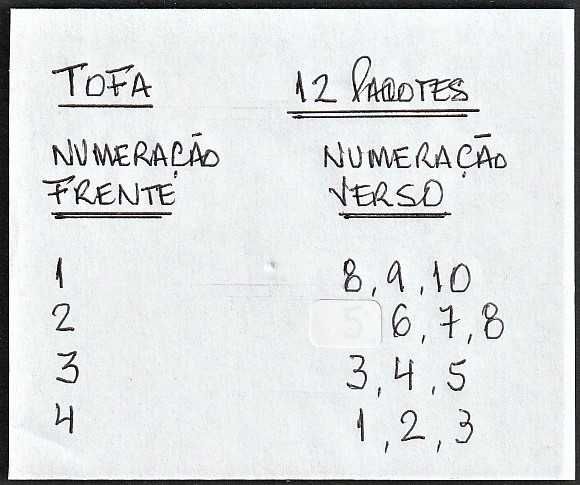 TOFA 12 PACOTES
NUMERAÇÃO NUMERAÇÃO
FRENTE VERSO
1 8, 9, 10
2 6, 7, 8
3 3, 4, 5
4 1, 2, 3